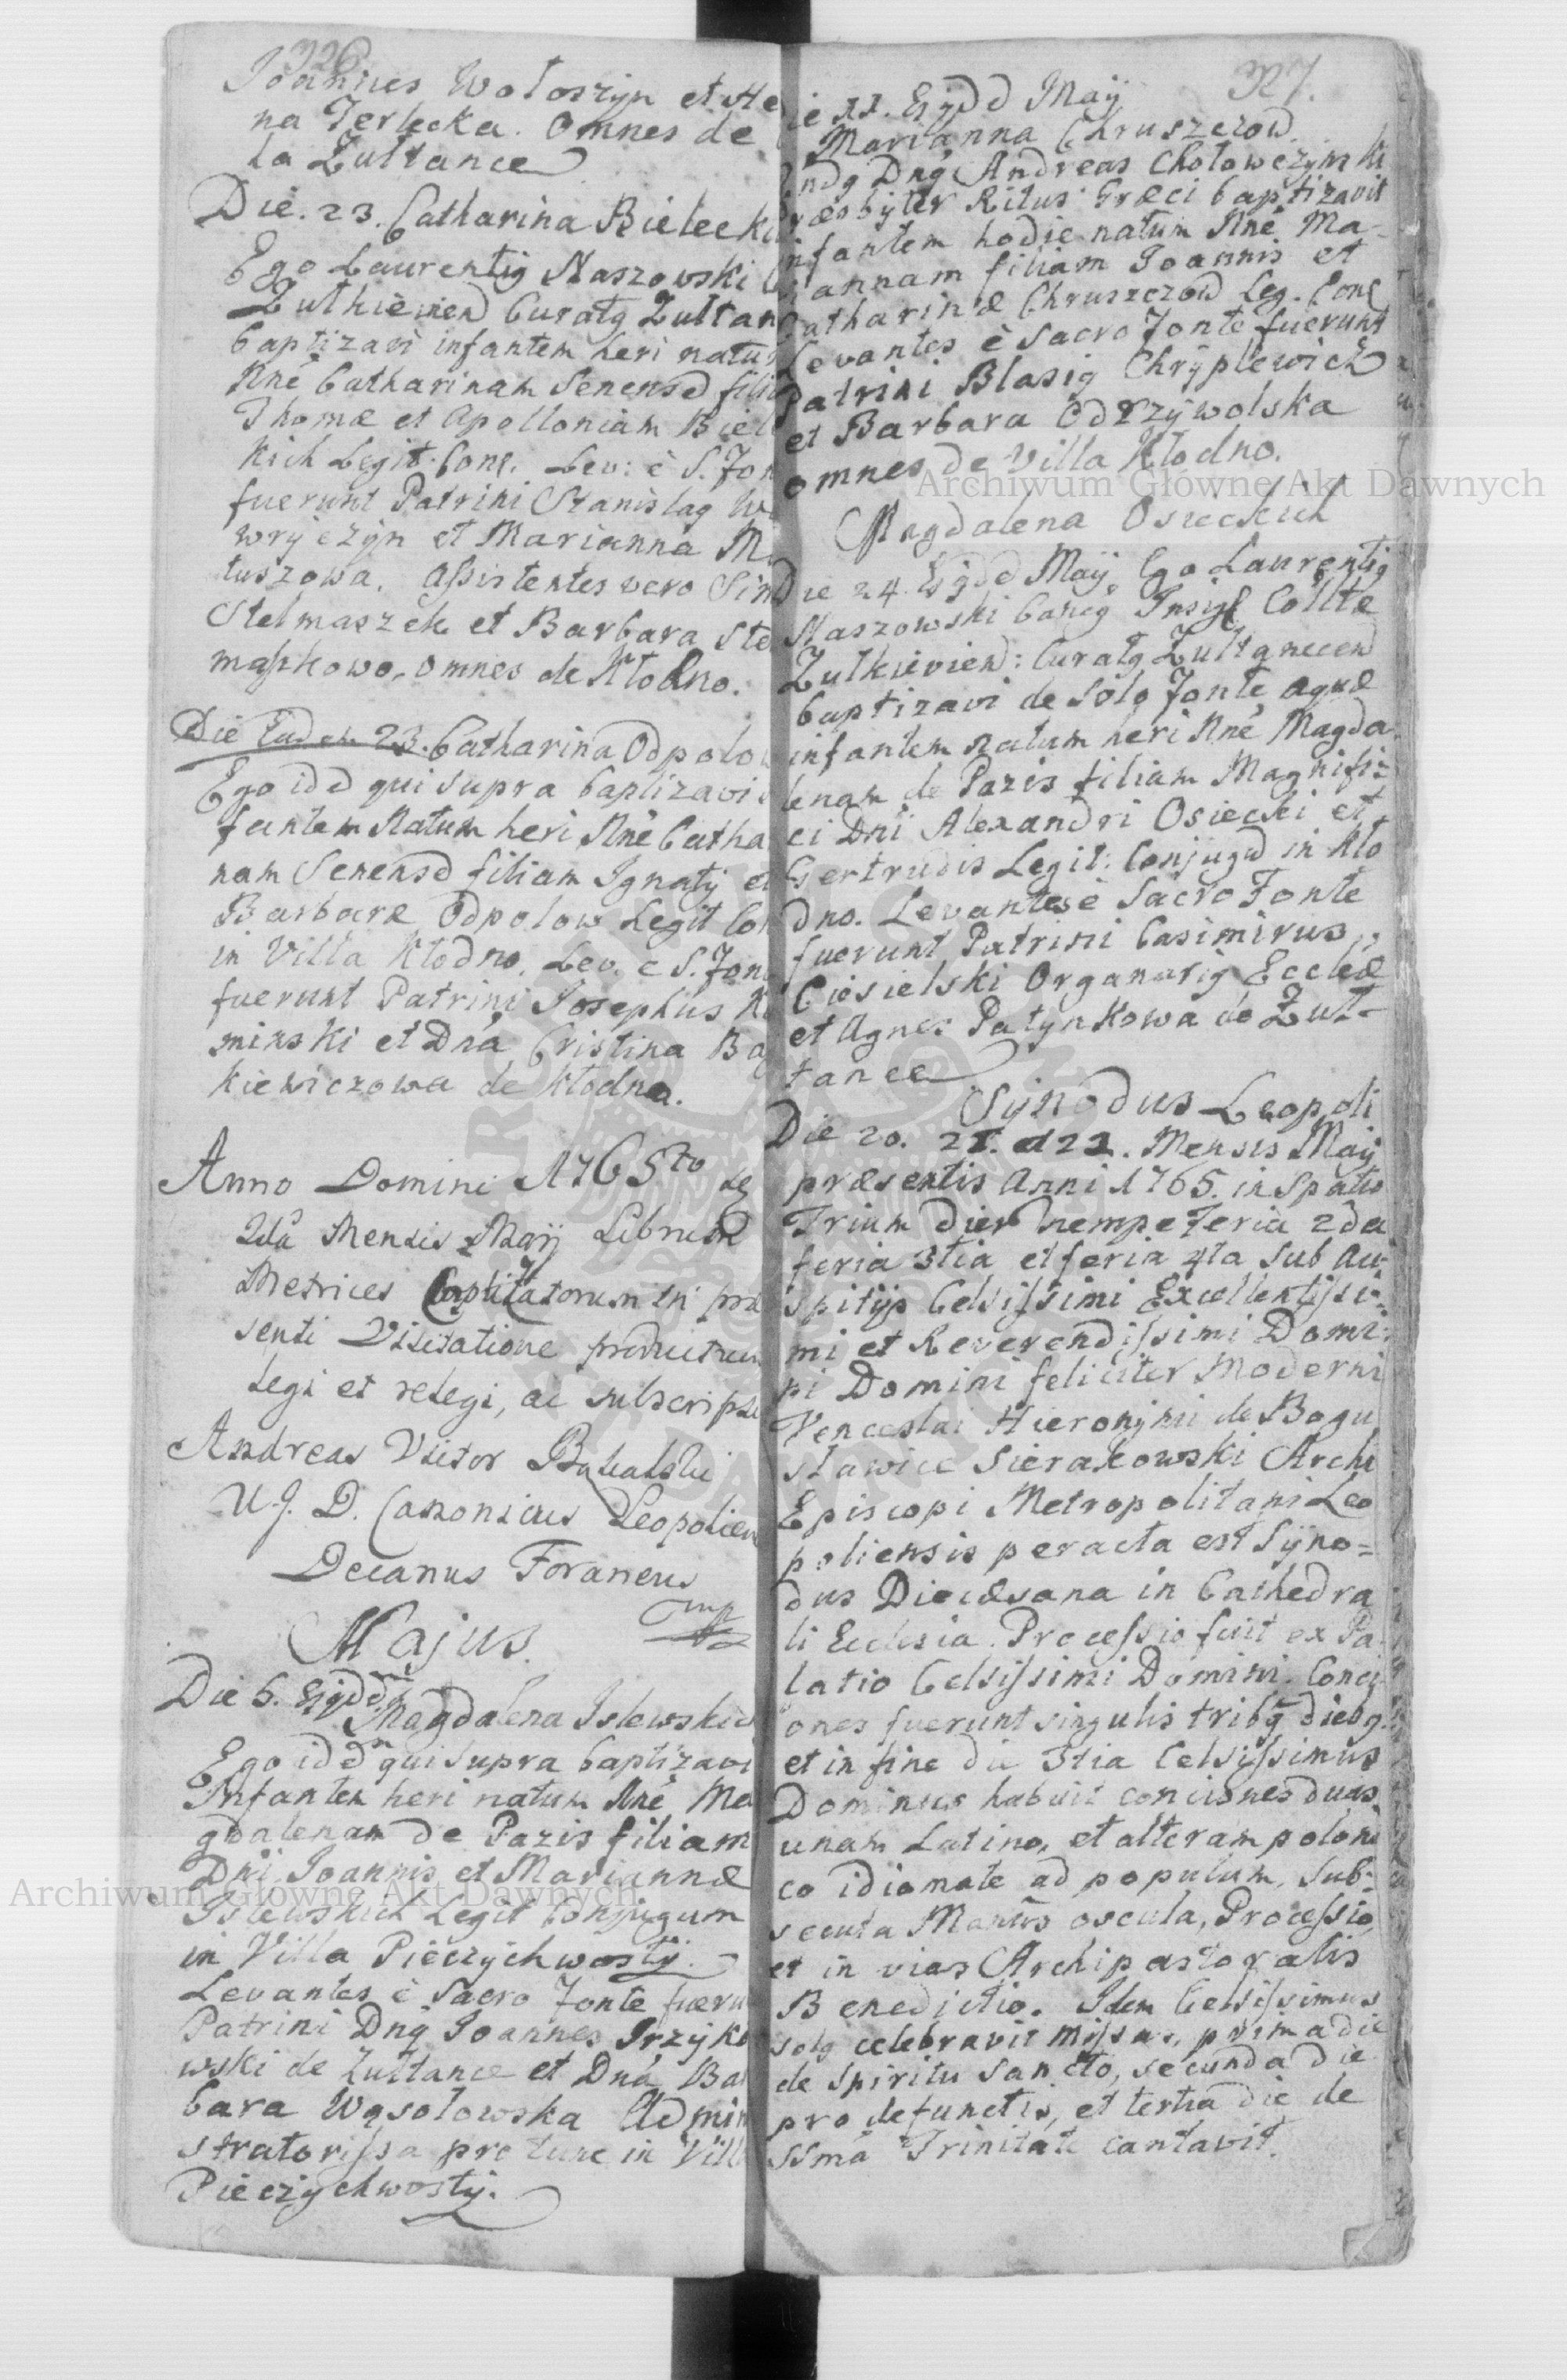 326
Joannes Wołoszyn et He
na Terlecka. Omnes de
la Zułtance
Die. 23. Catharina Bielecki
Ego Laurentig Naszowski
Zulkiewien Curatg Zultan
baptizavi infantem heri natu
Nne Catharinam Senensd filia
Thomæ et Apolloniam Biel
kich Legit. Conj. Lev: è S. Fon
fuerunt Patrini Stanislag W
wryczyn et Marianna M
tuszowa. Assistentes vero Sim
Stelmaszek et Barbara Ste
maszkowa, omnes de Kłodno.
Die Eadem 23. Catharina Odpolo
Ego idd qui supra baptizavi
fantem Natum heri Nne Catha
nam Senensd filiam Ignatij et
Barbaræ Odpolow Legit Con
in Villa Kłodno. Lev. e S. Fon
fuerunt Patrini Josephus K
minski et Dna Cristina Ba
kiewiczowa de Kłodno.
Anno Domini 1765to
2da Mensis Maij Librum
Metrices Baptisatorum in præ
senti Visitatione productum
Legi et relegi, ac subscripsi
Andreas Victor
U. J. D. Canonicus Leopolien
Decanus Foraneus
mp
Majus.
Die 6. Ejgdd
Magdalena Islewskich
Ego idd qui supra baptizavi
Infantem heri natum Nne Ma
gdalenam de Pazis filiam
Dni Joannis et Mariannæ
Islewskich Legit Conjugum
in Villa Pieczychwosty.
Levantes è Sacro Fonte fueru
Patrini Dng Joannes Trzyko
wski de Zultance et Dna Bar
bara Wąsołowska Admini
stratorissa pro tunc in Villa
Pieczychwosty.
327.
ie 11. Ejgdd Maij
Marianna Chruszczow
ndg Dng Andreas Chołowczynski
ræsbyter Ritus Græci baptizavit
infantem hodie natum Nne Ma-
iannam filiam Joannis et
Catharinæ Chruszczow Leg. Conj
Levantes è Sacro Fonte fuerunt
Patrini Blasig Chryplewicz
et Barbara Odrzywolska
omnes de Villa Kłodno.
Magdalena Osieckich
Die 24 Ejgdd Maij Ego Laurentig
Naszowski Cancg Insig Collte
Zulkievien: Curatg Zultancen
baptizavi de solo Fonte aquæ
infantem natum heri Nne Magda
lenam de Pazis filiam Magnifi-
ci Dni Alexandri Osiecki et
Gertrudis Legit: Conjugd in Kło
dno. Levantes è Sacro Fonte
fuerunt Patrini Casimirus
Ciesielski Organarig Ecclæ
et Agnes Patynkowa de Zuł-
tance
Synodus Leopoli
Die 20. 21. et 22. Mensis Maij
præsentis Anni 1765. in Spatio
Trium dier nempe Feria 2da
feria 3tia et feria 4ta sub au-
spitijs Celsissimi Excellentissi-
mi et Reverendissimi Domi-
ni Domini feliciter Moderni
Venceslai Hieronymi de Bogu
sławice Sierakowski Archi
Episcopi Metropolitani Leo
poliensis peracta est Syno=
dus Diœcesana in Cathedra
li Ecclesia. Processio fuit ex Pa
latio Celsissimi Domini. Conci
ones fuerunt singulis tribg diebg
et in fine die 3tia Celsissimus
Dominus habuit conciones duas
unam Latino, et alteram poloni
co idiomate ad populum, sub-
secuta Manus oscula, Processio
et in vias Archipastoralis
Benedictio. Idem Celsissimus
solg celebravit missas, prima die
de Spiritu Sancto, secunda die
pro defunctis, et tertia die de
SSma Trinitate cantavit.
Archiwum Główne Akt Dawnych
Archiwum Główne Akt Dawnych